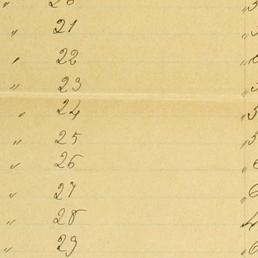 " 20
" 21 "
" 22 "
" 23 "
" 24 "
" 25 "
" 26 "
" 27 "
" 28
" 29 "